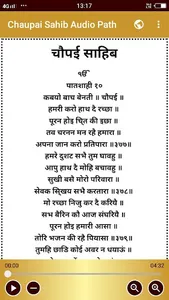 4G
13:17
Chaupai Sahib Audio Path
चौपई साहिब
ੴ
पातशाही १०
कबयो बाच बेनती ॥ चौपई ॥
हमरी करो हाथ दै रच्छा ॥
पूरन होइ चि्त की इछा ॥
तव चरनन मन रहै हमारा ॥
अपना जान करो प्रतिपारा ॥३७७॥
हमरे दुशट सभै तुम घावहु ॥
आपु हाथ दै मोहि बचावहु ॥
सुखी बसै मोरो परिवारा ॥
सेवक सि्खय सभै करतारा ॥३७८॥
मो रछा निजु कर दै करियै ॥
सभ बैरिन कौ आज संघरियै ॥
पूरन होइ हमारी आसा ॥
तोरि भजन की रहै पियासा ॥३७९॥
तुमहि छाडि कोई अवर न धयाऊं ॥
00:03
04:32